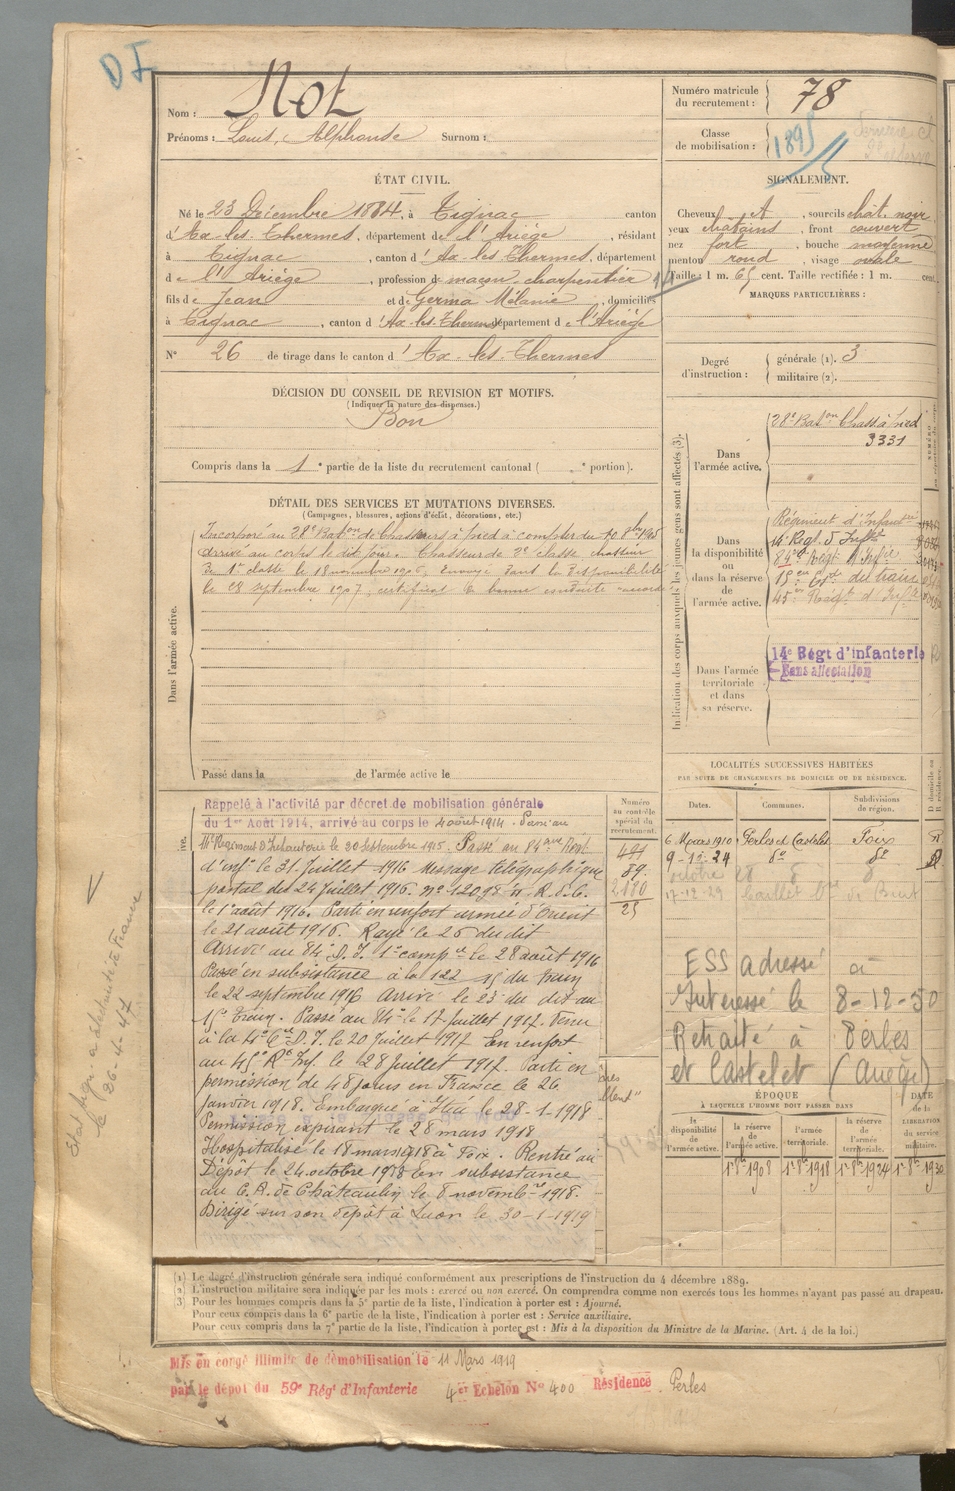 D I
Nom : Not
Prénoms : Louis, Alphonse Surnom :
Numéro matricule du recrutement : 78
Classe de mobilisation : 1895
ÉTAT CIVIL.
Né le 23 Décembre 1884, à Tignac canton
d'Ax-les-Thermes, département de l'Ariège, résidant
à Tignac, canton d'Ax-les-Thermes, département
de l'Ariège, profession de maçon, charpentier
fils de Jean et de Germa Mélanie, domiciliés
à Tignac, canton d'Ax-les-Thermes département de l'Ariège
N° 26 de tirage dans le canton d'Ax-les-Thermes
SIGNALEMENT.
Cheveux et, sourcils chât. noir
yeux châtains, front couvert
nez fort, bouche moyenne
menton rond, visage ovale
Taille : 1 m. 65 cent. Taille rectifiée : 1 m. cent.
MARQUES PARTICULIÈRES :
Degré d'instruction : générale (1). 3
militaire (2).
DÉCISION DU CONSEIL DE REVISION ET MOTIFS.
(Indiquer la nature des dispenses.)
Bon
Compris dans la 1e partie de la liste du recrutement cantonal ( e portion).
DÉTAIL DES SERVICES ET MUTATIONS DIVERSES.
(Campagnes, blessures, actions d'éclat, décorations, etc.)
Dans l'armée active.
Incorporé au 28e Baton de Chasseurs à pied à compter du 10 8bre 1905
arrivé au corps le dit jour. Chasseur de 2e classe chasseur
de 1re classe le 18 novembre 1906, Envoyé dans la disponibilité
le 28 septembre 1907, certificat de bonne conduite accordé
Passé dans la de l'armée active le
Indication des corps auxquels les jeunes gens sont affectés (3).
Dans l'armée active.
28e Baton Chass. à pied
3331
Dans la disponibilité ou dans la réserve de l'armée active.
Régiment d'Infanterie
14e Régt d'Inft
84e Régt d'Infie
15e du train
45e Régt d'Infie
Dans l'armée territoriale et dans sa réserve.
14e Régt d'infanterie
Sans affectation
LOCALITÉS SUCCESSIVES HABITÉES
PAR SUITE DE CHANGEMENTS DE DOMICILE OU DE RÉSIDENCE.
Dates. Communes. Subdivisions de région.
6 Mars 1910 Perles et Castelet Foix
9-12-24 do do
octobre 28
17-12-29
ESS adressé à
Intéressé le 8-12-50
Retraité à Perles
et Castelet (Ariège)
Rappelé à l'activité par décret de mobilisation générale
du 1er Août 1914, arrivé au corps le 4 août 1914. Passé au
Régiment d'Infanterie le 30 Septembre 1915. Passé au 84ème Régt
d'inf. le 31 Juillet 1916 Message télégraphique
postal du 24 Juillet 1916. n° R. d. C.
le 1er août 1916. Parti en renfort armée d'Orient
le 21 août 1916. Rayé le 26 du dit
Arrivé au 84e D. I. 1e compie le 28 août 1916
Passé en subsistance à la 122 15 du train
le 22 septembre 1916 Arrivé le 23 du dit au
15e Train. Passé au 84e le 17 Juillet 1917. Venu
à la 4e Cie D.I. le 20 Juillet 1917 En renfort
au 45e Rt Inf. le 28 Juillet 1917. Parti en
permission de 48 jours en France le 26
Janvier 1918. Embarqué à Itéa le 28-1-1918
Permission expirant le 28 mars 1918
Hospitalisé le 18 mars 1918 à Foix. Rentré au
Dépôt le 24 octobre 1918 En subsistance
au C. A. de Châteaulin le 8 novembre 1918.
Dirigé sur son dépôt à Luçon le 30-1-1919
Numéro au contrôle spécial du recrutement.
89.
25
ÉPOQUE
À LAQUELLE L'HOMME DOIT PASSER DANS
DATE de la LIBÉRATION du service militaire.
la disponibilité de l'armée active.
la réserve de l'armée active.
l'armée territoriale.
la réserve de l'armée territoriale.
1er 8bre 1908 1er 8bre 1918 1er 8bre 1924 1er 8bre 1930
le 26-4-47
(1) Le degré d'instruction générale sera indiqué conformément aux prescriptions de l'instruction du 4 décembre 1889.
(2) L'instruction militaire sera indiquée par les mots : exercé ou non exercé. On comprendra comme non exercés tous les hommes n'ayant pas passé au drapeau.
(3) Pour les hommes compris dans la 5e partie de la liste, l'indication à porter est : Ajourné.
Pour ceux compris dans la 6e partie de la liste, l'indication à porter est : Service auxiliaire.
Pour ceux compris dans la 7e partie de la liste, l'indication à porter est : Mis à la disposition du Ministre de la Marine. (Art. 4 de la loi.)
Mis en congé illimité de démobilisation le 11 Mars 1919
par le dépôt du 59e Régt d'Infanterie 4er Echelon N° 400 Résidence Perles